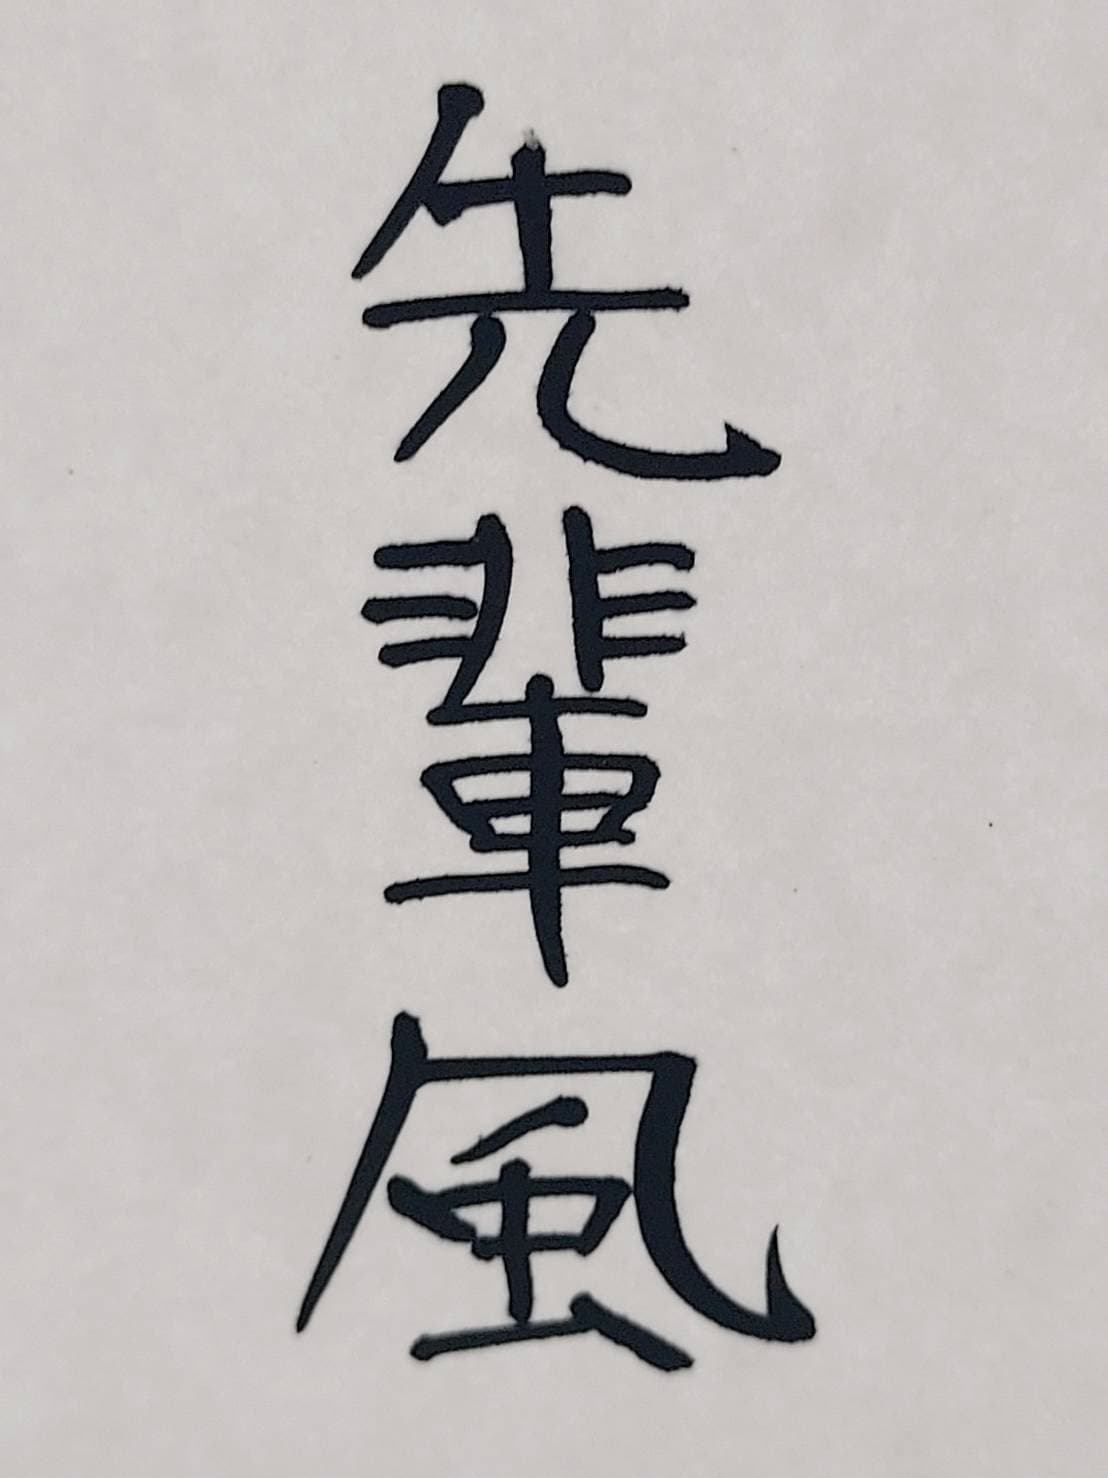 先輩風